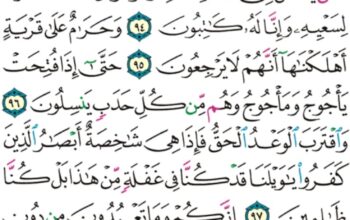 لِسَعْيِهِۦ وَإِنَّا لَهُۥ كَٰتِبُونَ ٩٤ وَحَرَٰمٌ عَلَىٰ قَرْيَةٍ
أَهْلَكْنَٰهَآ أَنَّهُمْ لَا يَرْجِعُونَ ٩٥ حَتَّىٰٓ إِذَا فُتِحَتْ
يَأْجُوجُ وَمَأْجُوجُ وَهُم مِّن كُلِّ حَدَبٍ يَنسِلُونَ ٩٦
وَٱقْتَرَبَ ٱلْوَعْدُ ٱلْحَقُّ فَإِذَا هِىَ شَٰخِصَةٌ أَبْصَٰرُ ٱلَّذِينَ
كَفَرُوا۟ يَٰوَيْلَنَا قَدْ كُنَّا فِى غَفْلَةٍ مِّنْ هَٰذَا بَلْ كُنَّا
ظَٰلِمِينَ ٩٧ إِنَّكُمْ وَمَا تَعْبُدُونَ مِن دُونِ